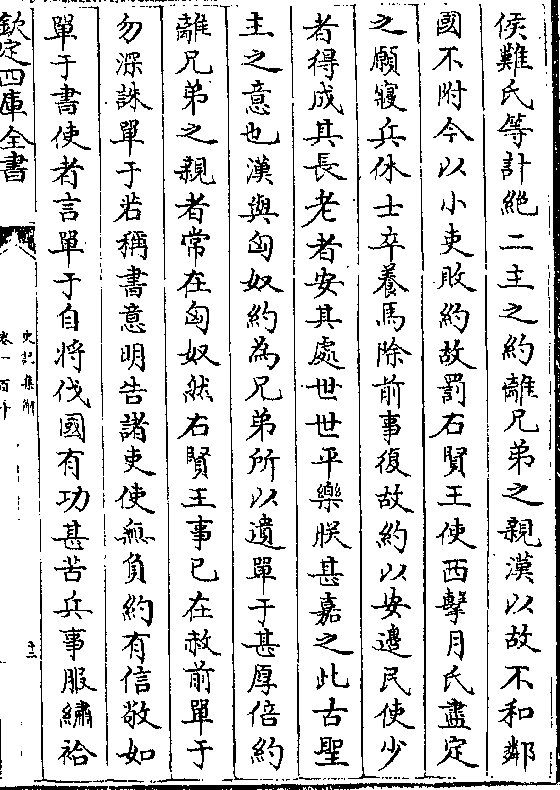 侯難氏等計絶二主之約離兄弟之親漢以故不和鄰
國不附今以小吏敗約故罰右賢王使西擊月氏盡定
之願寢兵休士卒養馬除前事復故約以安邊民使少
者得成其長老者安其處世世平樂朕甚嘉之此古聖
主之意也漢與匈奴約為兄弟所以遺單于甚厚倍約
離兄弟之親者常在匈奴然右賢王事已在赦前單于
勿深誅單于若稱書意明告諸吏使無負約有信敬如
單于書使者言單于自將伐國有功甚苦兵事服繡袷
欽定四庫全書
史記集解
卷一百十
十二